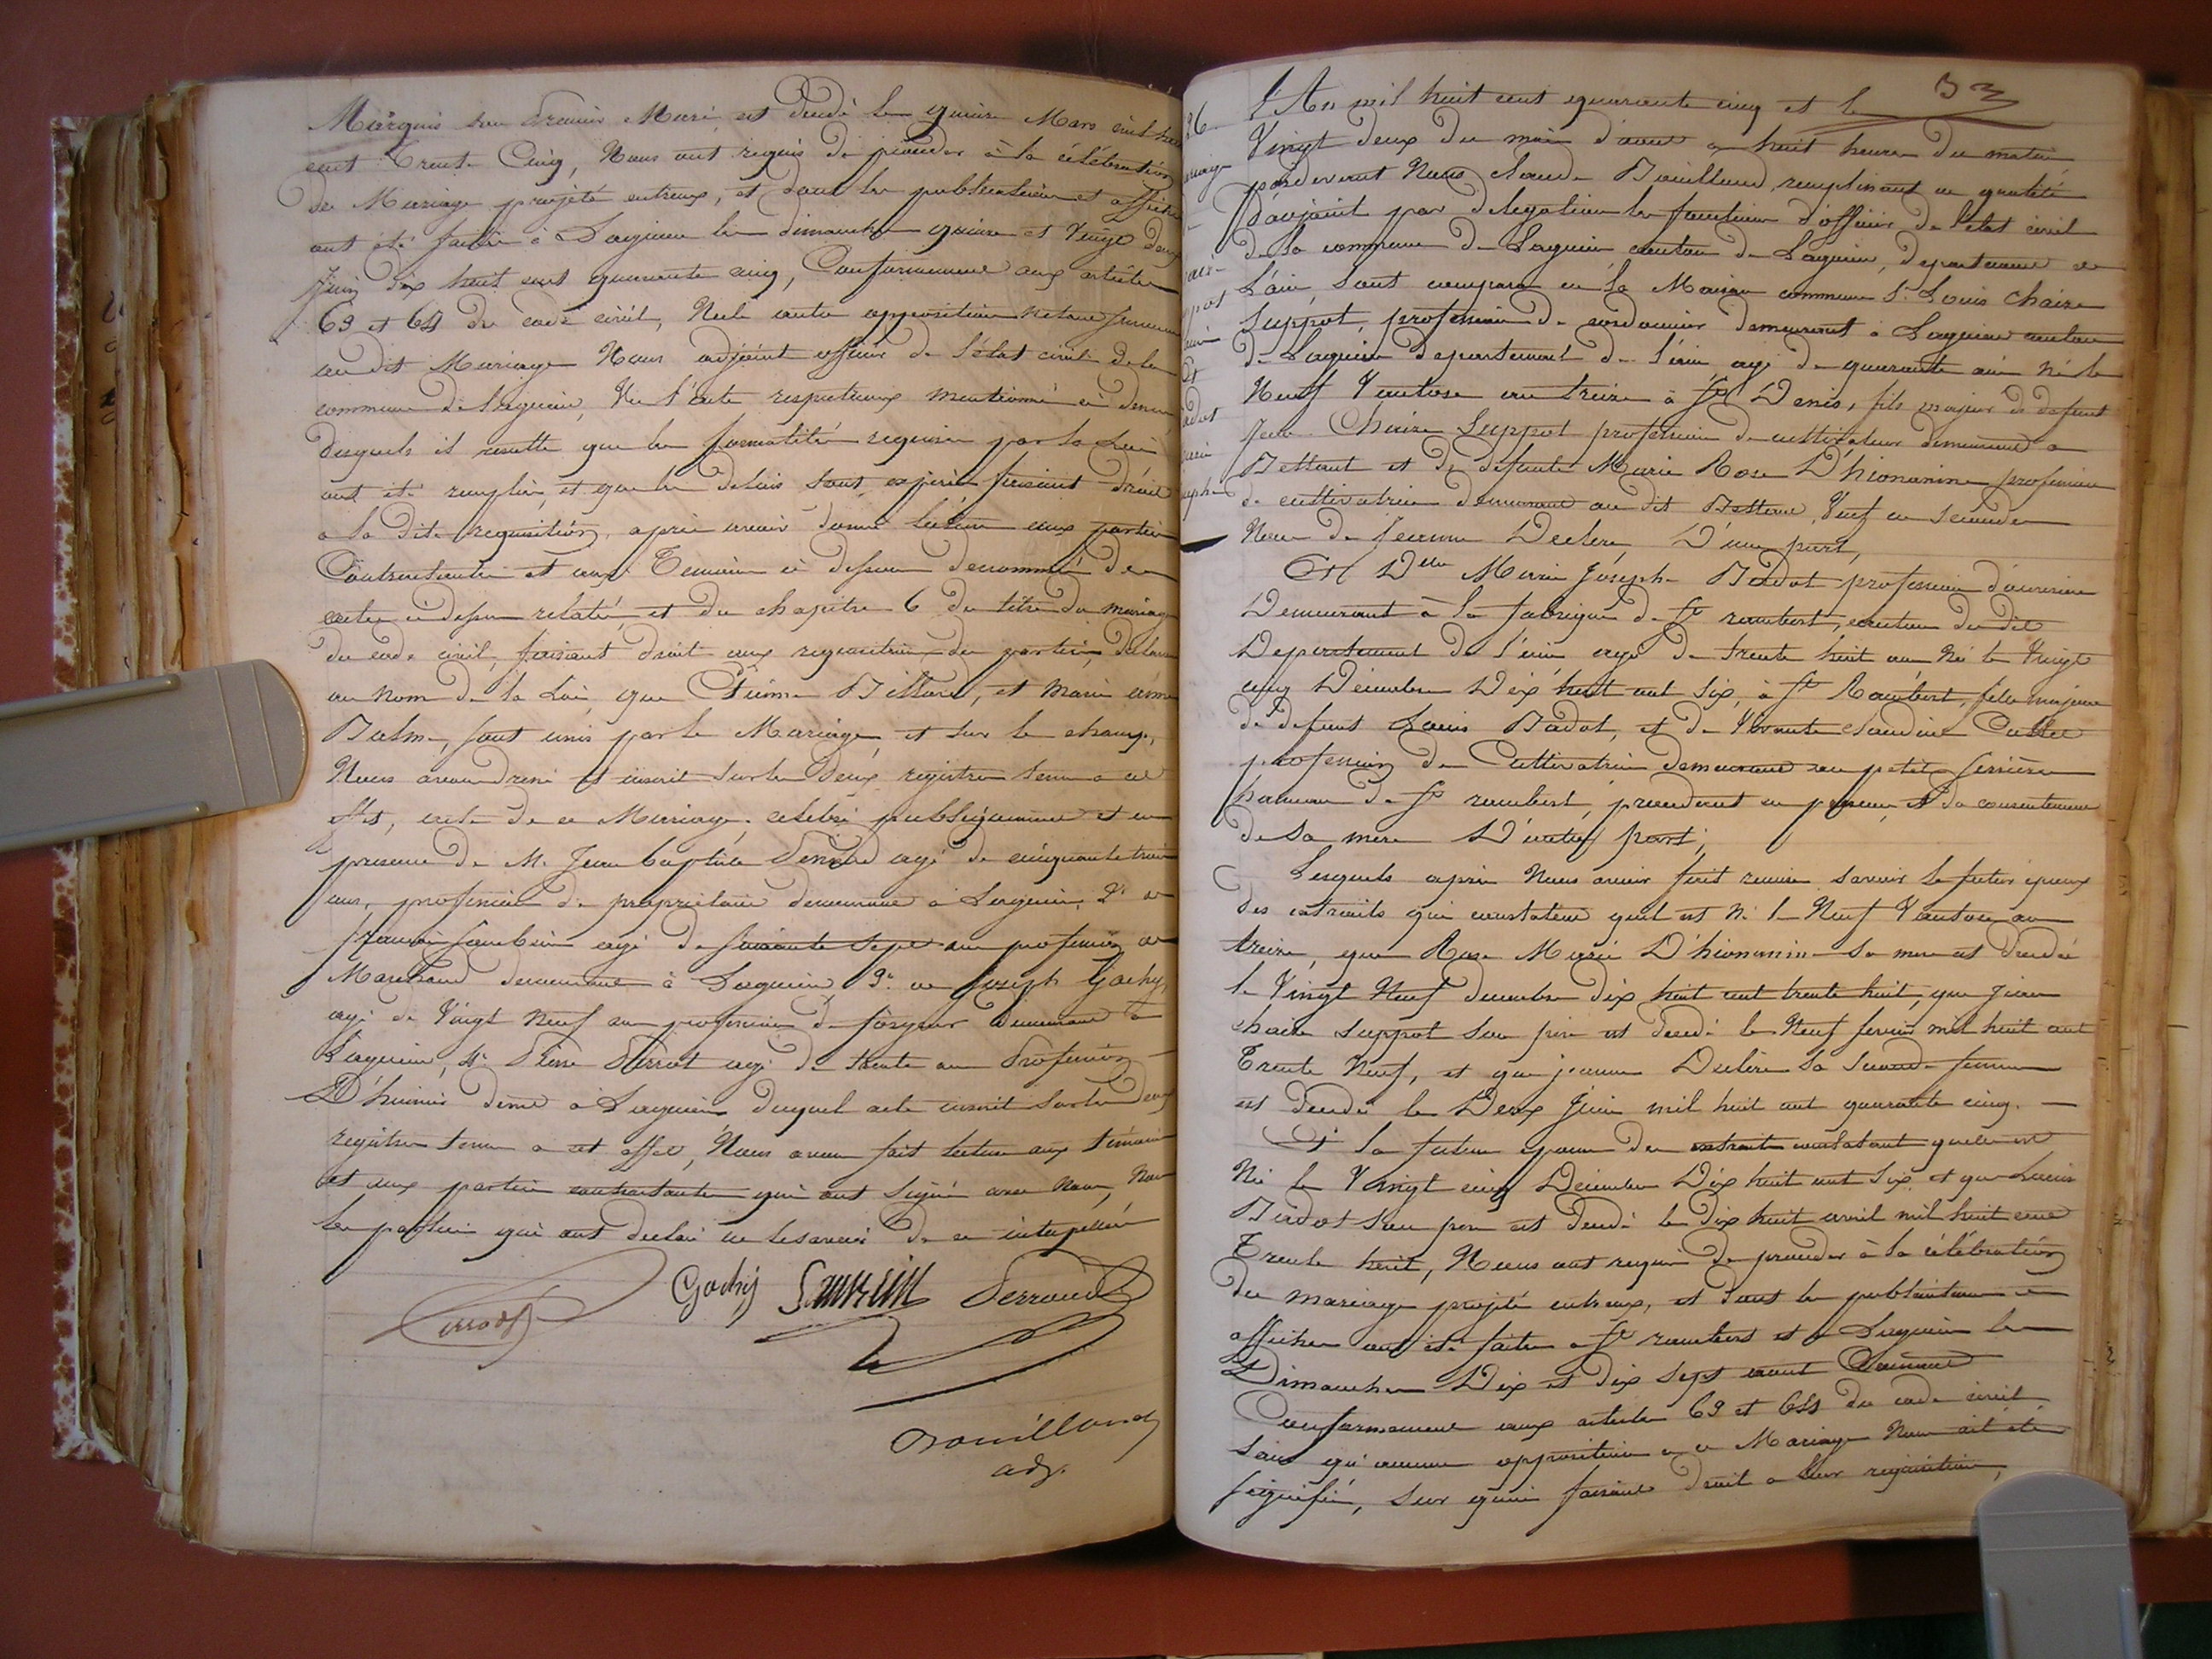 Marquis son premier Mari est décédé le quinze Mars mil huit
cent trente Cinq, Nous ont requis de procéder à la célébration
du Mariage projeté entreux, et dont les publications et affiches
ont été faites à Lagnieu les dimanches quinze et Vingt deux
Juin dix huit cent quarante cinq, Conformement aux articles
63 et 64 du code civil, Nulle autre opposition
au dit Mariage Nous adjoint officier de l'état civil de la
commune de Lagnieu, Vu l'acte respectueux mentionné ci dessus
desquels il resulte que les formalités requises par la Loi
ont été remplies, et que les délais sont expirés faisant droit
a la dite requisition, après avoir donné lecture aux parties
Contractantes et aux Temoins ci dessus denommés des
actes ci dessus relatés et du chapitre 6 du titre du mariage
du code civil, faisant droit aux requisitions des parties, déclarons
au nom de la Loi, que et Marie
Balme, sont unis par le Mariage, et sur le champ,
Nous avons dressé et inscrit sur les deux registres tenus a cet
effet, acte de ce Mariage, célébré publiquement et en
presence de M. Jean baptiste agé de cinquante trois
ans, profession de propriétaire demeurant à Lagnieu, 2° de
agé de soixante sept ans profession de
Marchand demeurant à Lagnieu, 3° de Joseph Gachy,
agé de Vingt Neuf ans profession de demeurant à
Lagnieu, 4° Pierre Perrot agé de trente ans Profession
D'huissier demt à Lagnieu duquel acte inscrit sur les deux
registres tenus a cet effet, Nous avons fait lecture aux témoins
et aux parties contractantes qui ont signé avec Nous, Non
les parties qui ont déclaré ne le savoir de ce interpellées
Gachy
Bouilloud
adj.
53
26
L'An mil huit cent quarante cinq et le
Vingt deux du mois d'aout a huit heures du matin
pardevant Nous claude Bouilloud, remplissant en qualité
d'adjoint par delegation les fonctions d'officier de l'état civil
de la commune de Lagnieu canton de Lagnieu, departement de
L'ain, sont comparu en la Maison commune Sr Louis Chaire
Suppot, profession de cordonnier demeurant à Lagnieu canton
de Lagnieu departement de l'ain, agé de quarante ans né le
Neuf Ventose an treize à St Denis, fils majeur de defunt
Jean Chaire Suppot profession de cultivateur demeurant a
Bettant et de defunte Marie Rose D'hionanin profession
de cultivatrice demeurant au dit Bettant, Veuf en secondes
Noces de Jeanne Declere, D'une part,
Et Delle Marie Joseph Badot profession d'ouvriere
Demeurant à la fabrique de St rambert, canton du dit
Departement de l'ain agé de trente huit ans Né le Vingt
cinq Décembre Dix huit cent six, à St Rambert, fille majeure
de defunt Louis Badot, et de Vivante claudine
profession de Cultivatrice demeurant au petit
hameau de St rambert, procedant en personne et du consentement
de sa mere D'autre part;
Lesquels après Nous avoir fait remise savoir le futur epoux
des extraits qui constatent quil est né le Neuf Ventose an
treize, que Rose Marie D'hionanin sa mere est Décédée
le Vingt Neuf decembre dix huit cent trente huit, que Jean
chaire suppot son père est décédé le Neuf fevrier mil huit cent
Trente Neuf, et que jeanne Declere sa seconde femme
est décédée le Deux Juin mil huit cent quarante cinq.
Et la future epouse des extraits constatant quelle est
Née le Vingt cinq Décembre Dix huit cent six et que Louis
Badot son pere est décédé le Dix huit avril mil huit cent
Trente huit, Nous ont requis de proceder à la célébration
du mariage projeté entreux, et dont les publications et
affiches ont été faites a St rambert et a Lagnieu les
Dimanches Dix et dix sept aout Courant
Conformement aux articles 63 et 64 du code civil
sans qu'aucune opposition a ce Mariage Nous ait été
signifiée, sur quoi faisant droit a leur requisition,